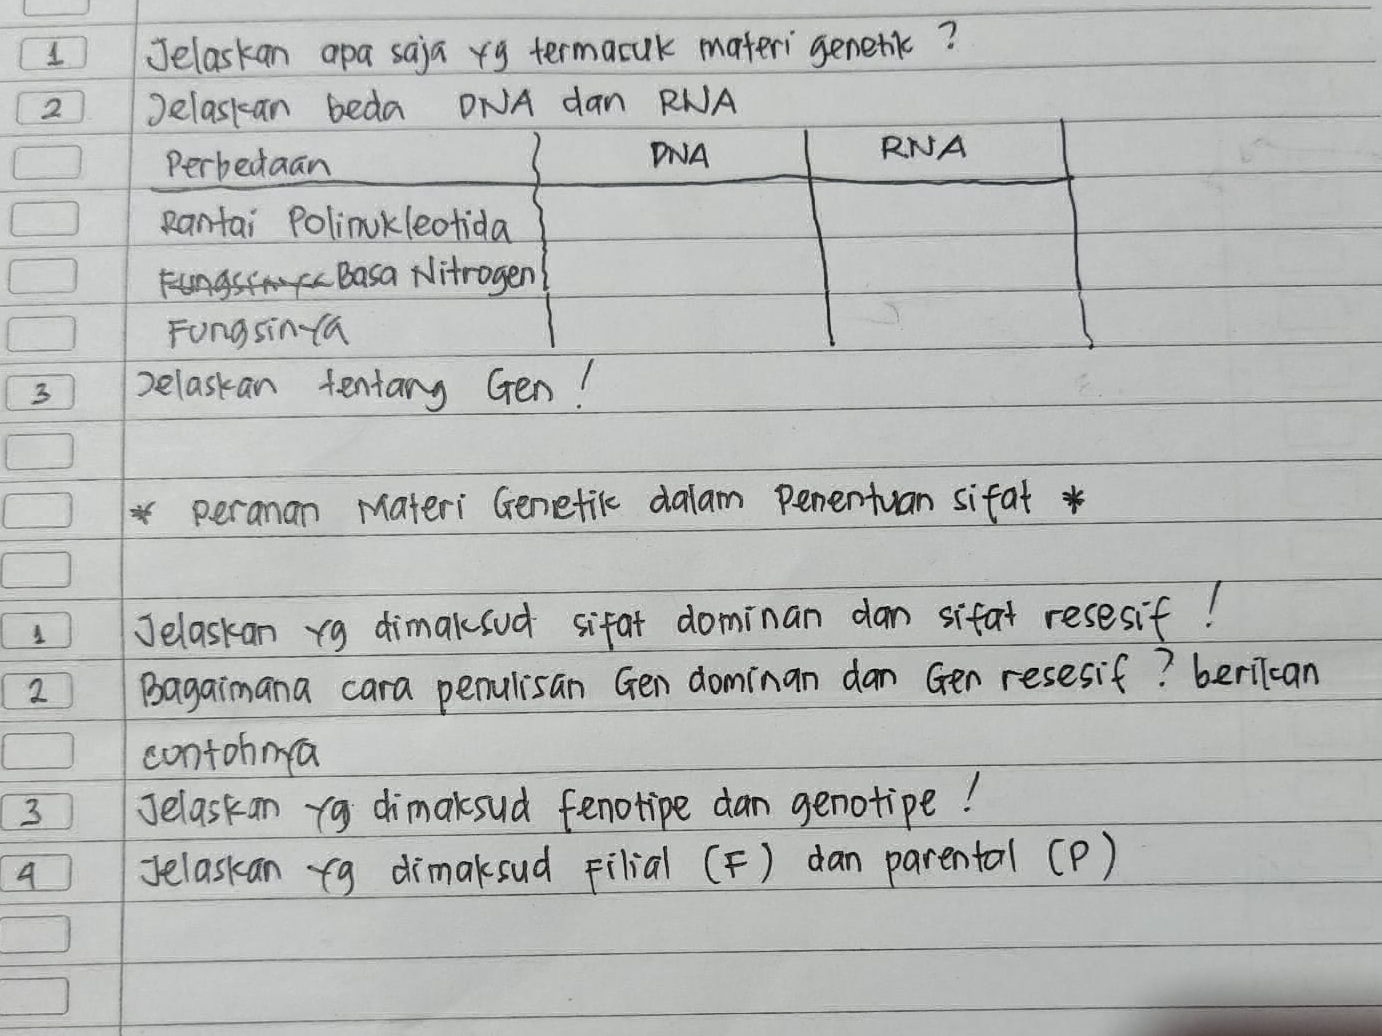 1 Jelaskan apa saja yg termasuk materi genetik ?
2 Jelaskan beda DNA dan RNA
Perbedaan DNA RNA
Rantai Polinukleotida
Fungsinya Basa Nitrogen
Fungsinya
3 Jelaskan tentang Gen !
* Peranan Materi Genetik dalam Penentuan sifat *
1 Jelaskan yg dimaksud sifat dominan dan sifat resesif !
2 Bagaimana cara penulisan Gen dominan dan Gen resesif ? berikan
contohnya
3 Jelaskan yg dimaksud fenotipe dan genotipe !
4 Jelaskan yg dimaksud Filial (F) dan parental (P)